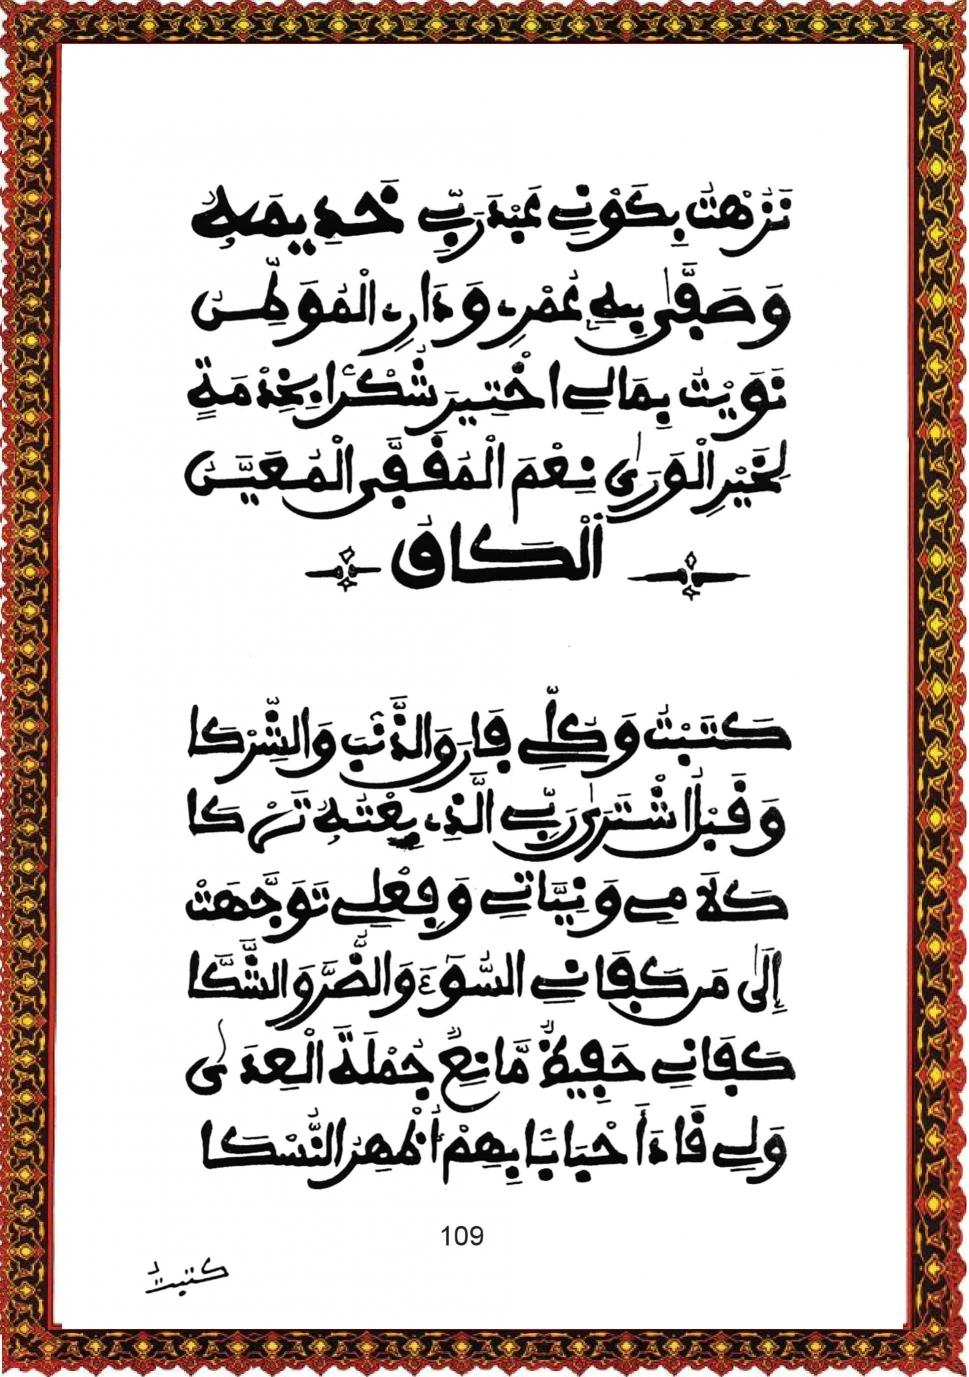 نَزُهْتُ بِكَوْنِي عَبْدَ رَبِّي خَدِيمَهُ
وَصَفَّى بِهِ عُمْرِي وَدَارِي الْمُوَطِّنُ
نَوَيْتُ بِمَا لِي اخْتِيرَ شُكْرًا بِخِدْمَةٍ
لِخَيْرِ الْوَرَى نِعْمَ الْمُفَقَّى الْمُعَيَّنُ
اَلْكَافُ
كَتَبْتُ وَكُلِّي فَارَقَ الذَّنْبَ وَالشِّرْكَا
وَقَبْلُ اشْتَرَى رَبِّي الَّذِي بِعْتُهُ تَرْكَا
كَلَامِي وَنِيَّاتِي وَفِعْلِي تَوَجَّهَتْ
إِلَى مَن كَفَانِي السُّوءَ وَالضُّرَّ وَالشَّكَّا
كَفَانِي حَفِيظٌ مَّانِعٌ جُمْلَةَ الْعِدَى
وَلِي قَادَ أَحْبَابًا بِهِمْ أُظْهِرُ النُّسْكَا
109
كتبت